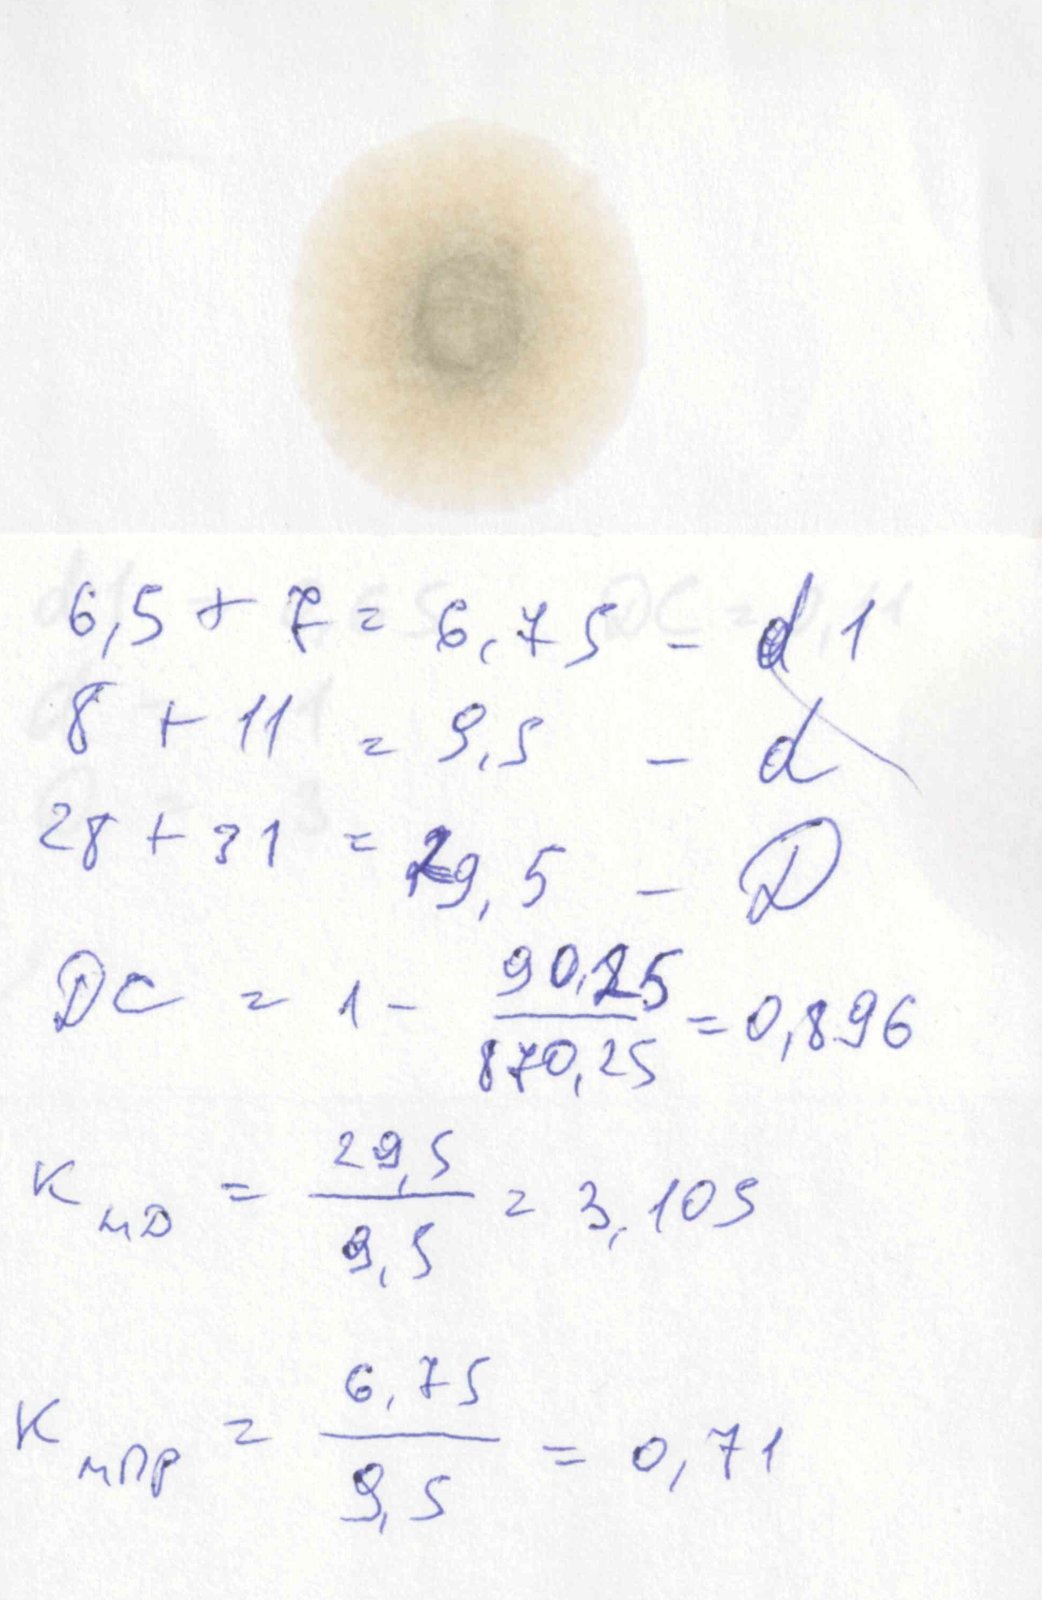 6,5 + 7 = 6,75 - d1
8 + 11 = 9,5 - d
28 + 31 = 29,5 - D
DC = 1 - 90,25/870,25 = 0,896
K мд = 29,5/9,5 = 3,105
K мпр = 6,75/9,5 = 0,71